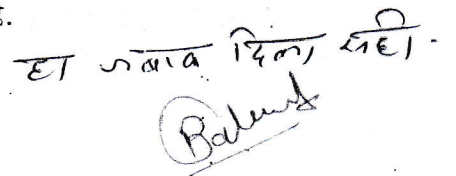 हा जबाब दिला सही.